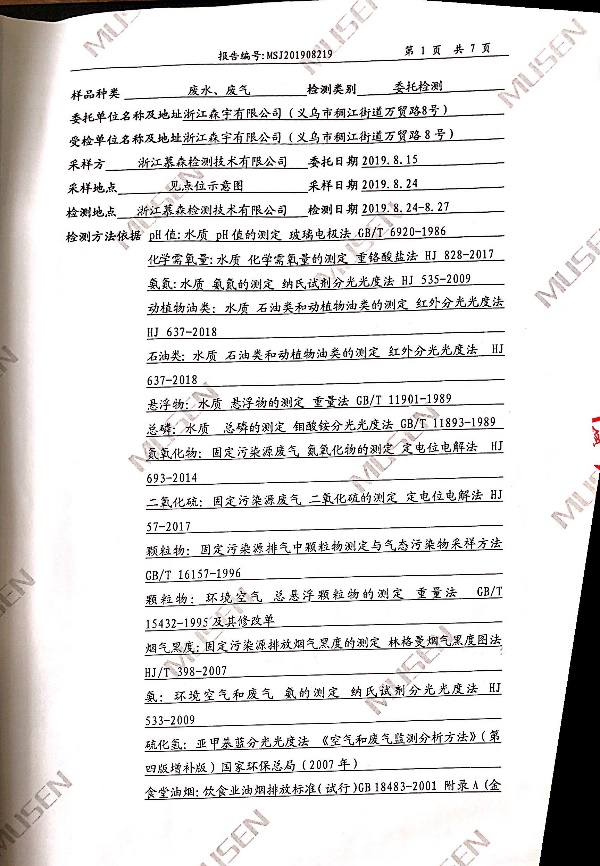 报告编号:MSJ201908219 第 1 页 共 7 页
样品种类 废水、废气 检测类别 委托检测
委托单位名称及地址浙江森宇有限公司（义乌市稠江街道万贸路8号）
受检单位名称及地址浙江森宇有限公司（义乌市稠江街道万贸路 8 号）
采样方 浙江慕森检测技术有限公司 委托日期 2019.8.15
采样地点 见点位示意图 采样日期 2019.8.24
检测地点 浙江慕森检测技术有限公司 检测日期 2019.8.24-8.27
检测方法依据 pH 值: 水质 pH 值的测定 玻璃电极法 GB/T 6920-1986
化学需氧量: 水质 化学需氧量的测定 重铬酸盐法 HJ 828-2017
氨氮: 水质 氨氮的测定 纳氏试剂分光光度法 HJ 535-2009
动植物油类: 水质 石油类和动植物油类的测定 红外分光光度法
HJ 637-2018
石油类: 水质 石油类和动植物油类的测定 红外分光光度法 HJ
637-2018
悬浮物: 水质 悬浮物的测定 重量法 GB/T 11901-1989
总磷: 水质 总磷的测定 钼酸铵分光光度法 GB/T 11893-1989
氮氧化物: 固定污染源废气 氮氧化物的测定 定电位电解法 HJ
693-2014
二氧化硫: 固定污染源废气 二氧化硫的测定 定电位电解法 HJ
57-2017
颗粒物: 固定污染源排气中颗粒物测定与气态污染物采样方法
GB/T 16157-1996
颗粒物: 环境空气 总悬浮颗粒物的测定 重量法 GB/T
15432-1995 及其修改单
烟气黑度: 固定污染源排放烟气黑度的测定 林格曼烟气黑度图法
HJ/T 398-2007
氨: 环境空气和废气 氨的测定 纳氏试剂分光光度法 HJ
533-2009
硫化氢: 亚甲基蓝分光光度法 《空气和废气监测分析方法》（第
四版增补版）国家环保总局（2007 年）
食堂油烟: 饮食业油烟排放标准(试行)GB 18483-2001 附录 A (金
MUSEN
MUSEN
MUSEN
MUSEN
MUSEN
MUSEN
MUSEN
MUSEN
MUSEN
MUSEN
MUSEN
MUSEN
MUSEN
MUSEN